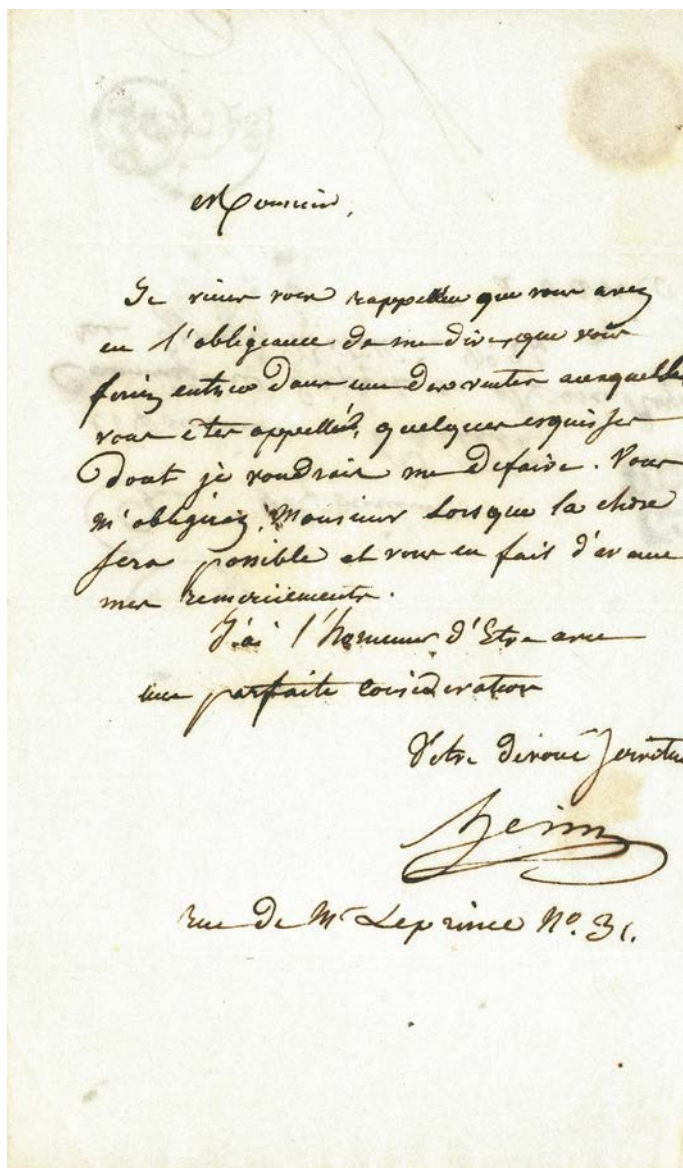 Monsieur,
Je viens vous rappeller que vous avez
eu l'obligeance de me dire, que vous
feriez entrer dans une des ventes auxquelles
vous êtes appellés, quelques esquisses
dont je voudrais me defaire. Vous
m'obligerez, Monsieur lorsque la chose
sera possible et vous en fait d'avance
mes remerciements.
J'ai l'honneur d'Etre avec
une parfaite consideration
Votre dévoué serviteur
heim
rue de Mr Leprince No. 31.